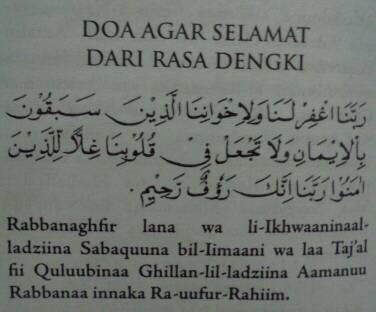 DOA AGAR SELAMAT
DARI RASA DENGKI
رَبَّنَا اغْفِرْ لَنَا وَلِاِخْوَانِنَا الَّذِيْنَ سَبَقُوْنَ
بِالْاِيْمَانِ وَلَا تَجْعَلْ فِيْ قُلُوْبِنَا غِلًّا لِّلَّذِيْنَ
اٰمَنُوْا رَبَّنَا اِنَّكَ رَؤُفٌ رَحِيْمٌ .
Rabbanaghfir lana wa li-Ikhwaaninaal-
ladziina Sabaquuna bil-Iimaani wa laa Taj'al
fii Quluubinaa Ghillan-lil-ladziina Aamanuu
Rabbanaa innaka Ra-uufur-Rahiim.